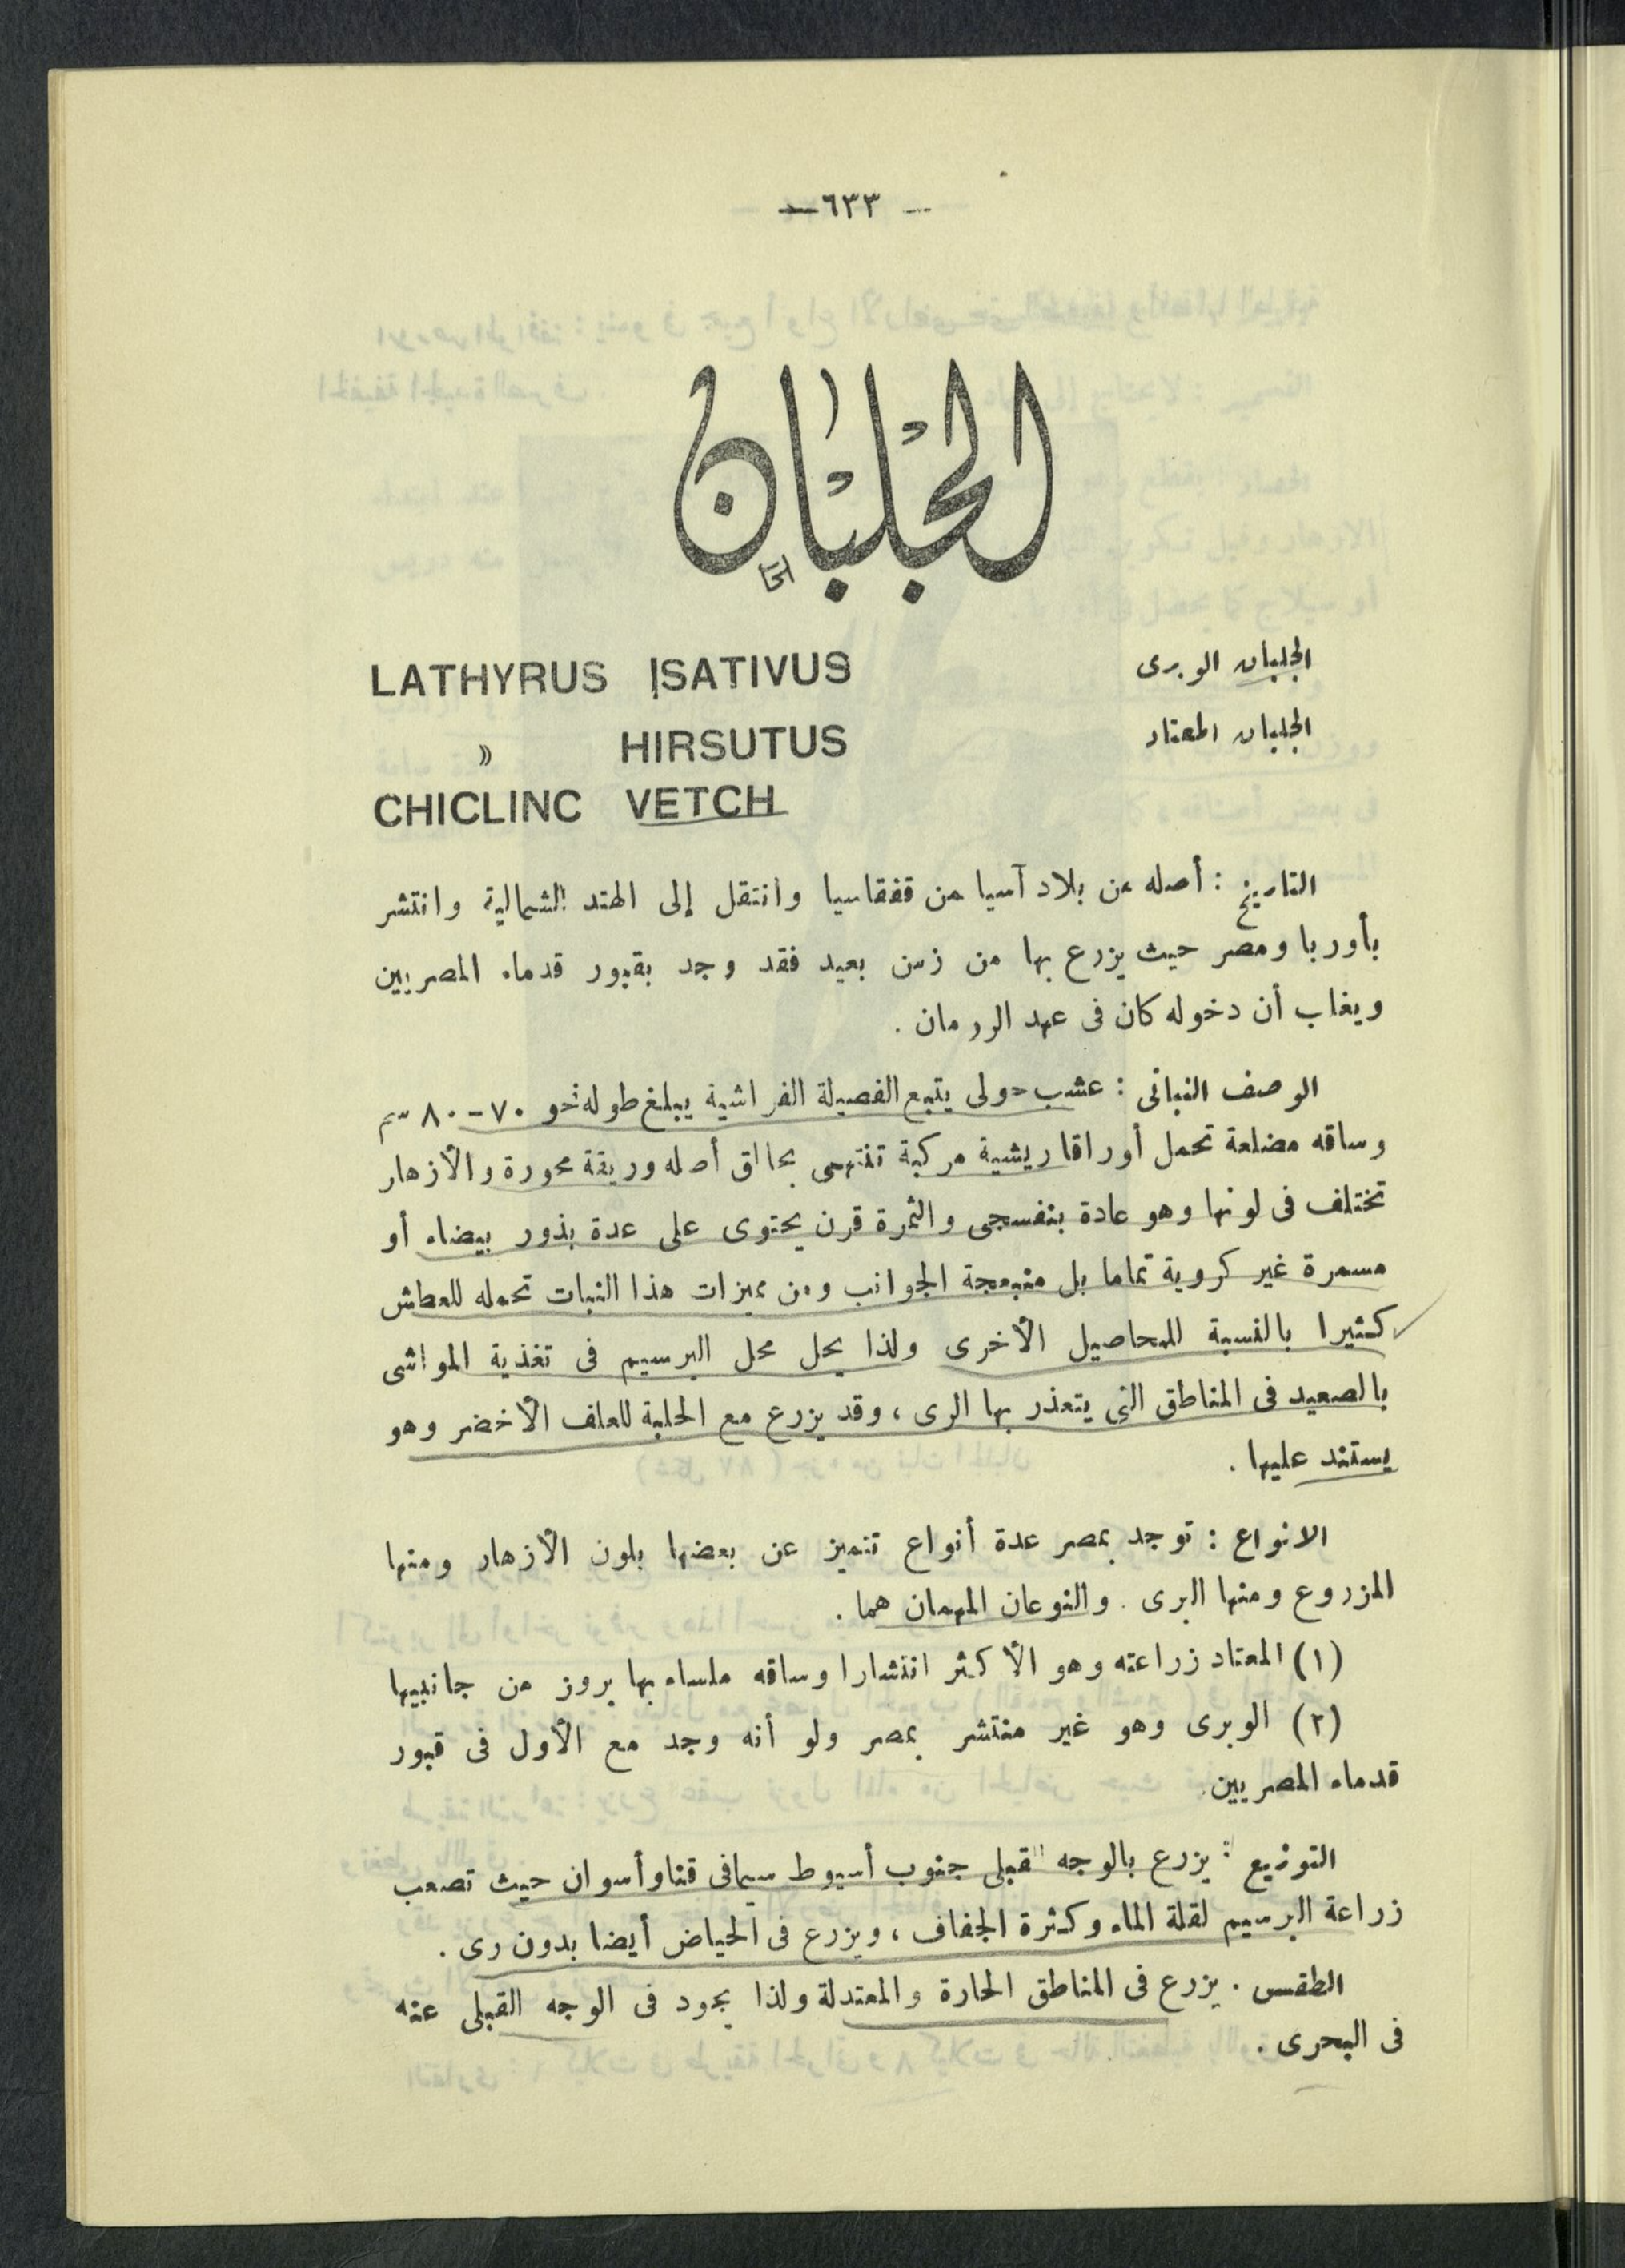 — ٦٣٣ —
الجلبان
الجلبان الوبرى LATHYRUS SATIVUS
الجلبان المعتاد » HIRSUTUS
CHICLINC VETCH
التاريخ : أصله من بلاد آسيا من قفقاسيا وانتقل إلى الهند الشمالية وانتشر
بأوربا ومصر حيث يزرع بها من زمن بعيد فقد وجد بقبور قدماء المصريين
ويغلب أن دخوله كان فى عهد الرومان .
الوصف النباتى : عشب حولى يتبع الفصيلة الفراشية يبلغ طوله نحو ٧٠ - ٨٠ سم
وساقه مضلعة تحمل أوراقا ريشية مركبة تنتهى بحالق أصله وريقة محورة والأزهار
تختلف فى لونها وهو عادة بنفسجى والثمرة قرن يحتوى على عدة بذور بيضاء أو
مسمرة غير كروية تماما بل منبعجة الجوانب ومن مميزات هذا النبات تحمله للعطش
كثيرا بالنسبة للمحاصيل الأخرى ولذا يحل محل البرسيم فى تغذية المواشى
بالصعيد فى المناطق التى يتعذر بها الرى ، وقد يزرع مع الحلبة للعلف الأخضر وهو
يستند عليها .
الانواع : توجد بمصر عدة أنواع تتميز عن بعضها بلون الأزهار ومنها
المزروع ومنها البرى . والنوعان المهمان هما .
(١) المعتاد زراعته وهو الأكثر انتشارا وساقه ملساء بها بروز من جانبيها
(٢) الوبرى وهو غير منتشر بمصر ولو أنه وجد مع الأول فى قبور
قدماء المصريين.
التوزيع : يزرع بالوجه القبلى جنوب أسيوط سيما فى قنا وأسوان حيث تصعب
زراعة البرسيم لقلة الماء وكثرة الجفاف ، ويزرع فى الحياض أيضا بدون رى .
الطقس . يزرع فى المناطق الحارة والمعتدلة ولذا يجود فى الوجه القبلى عنه
فى البحرى .